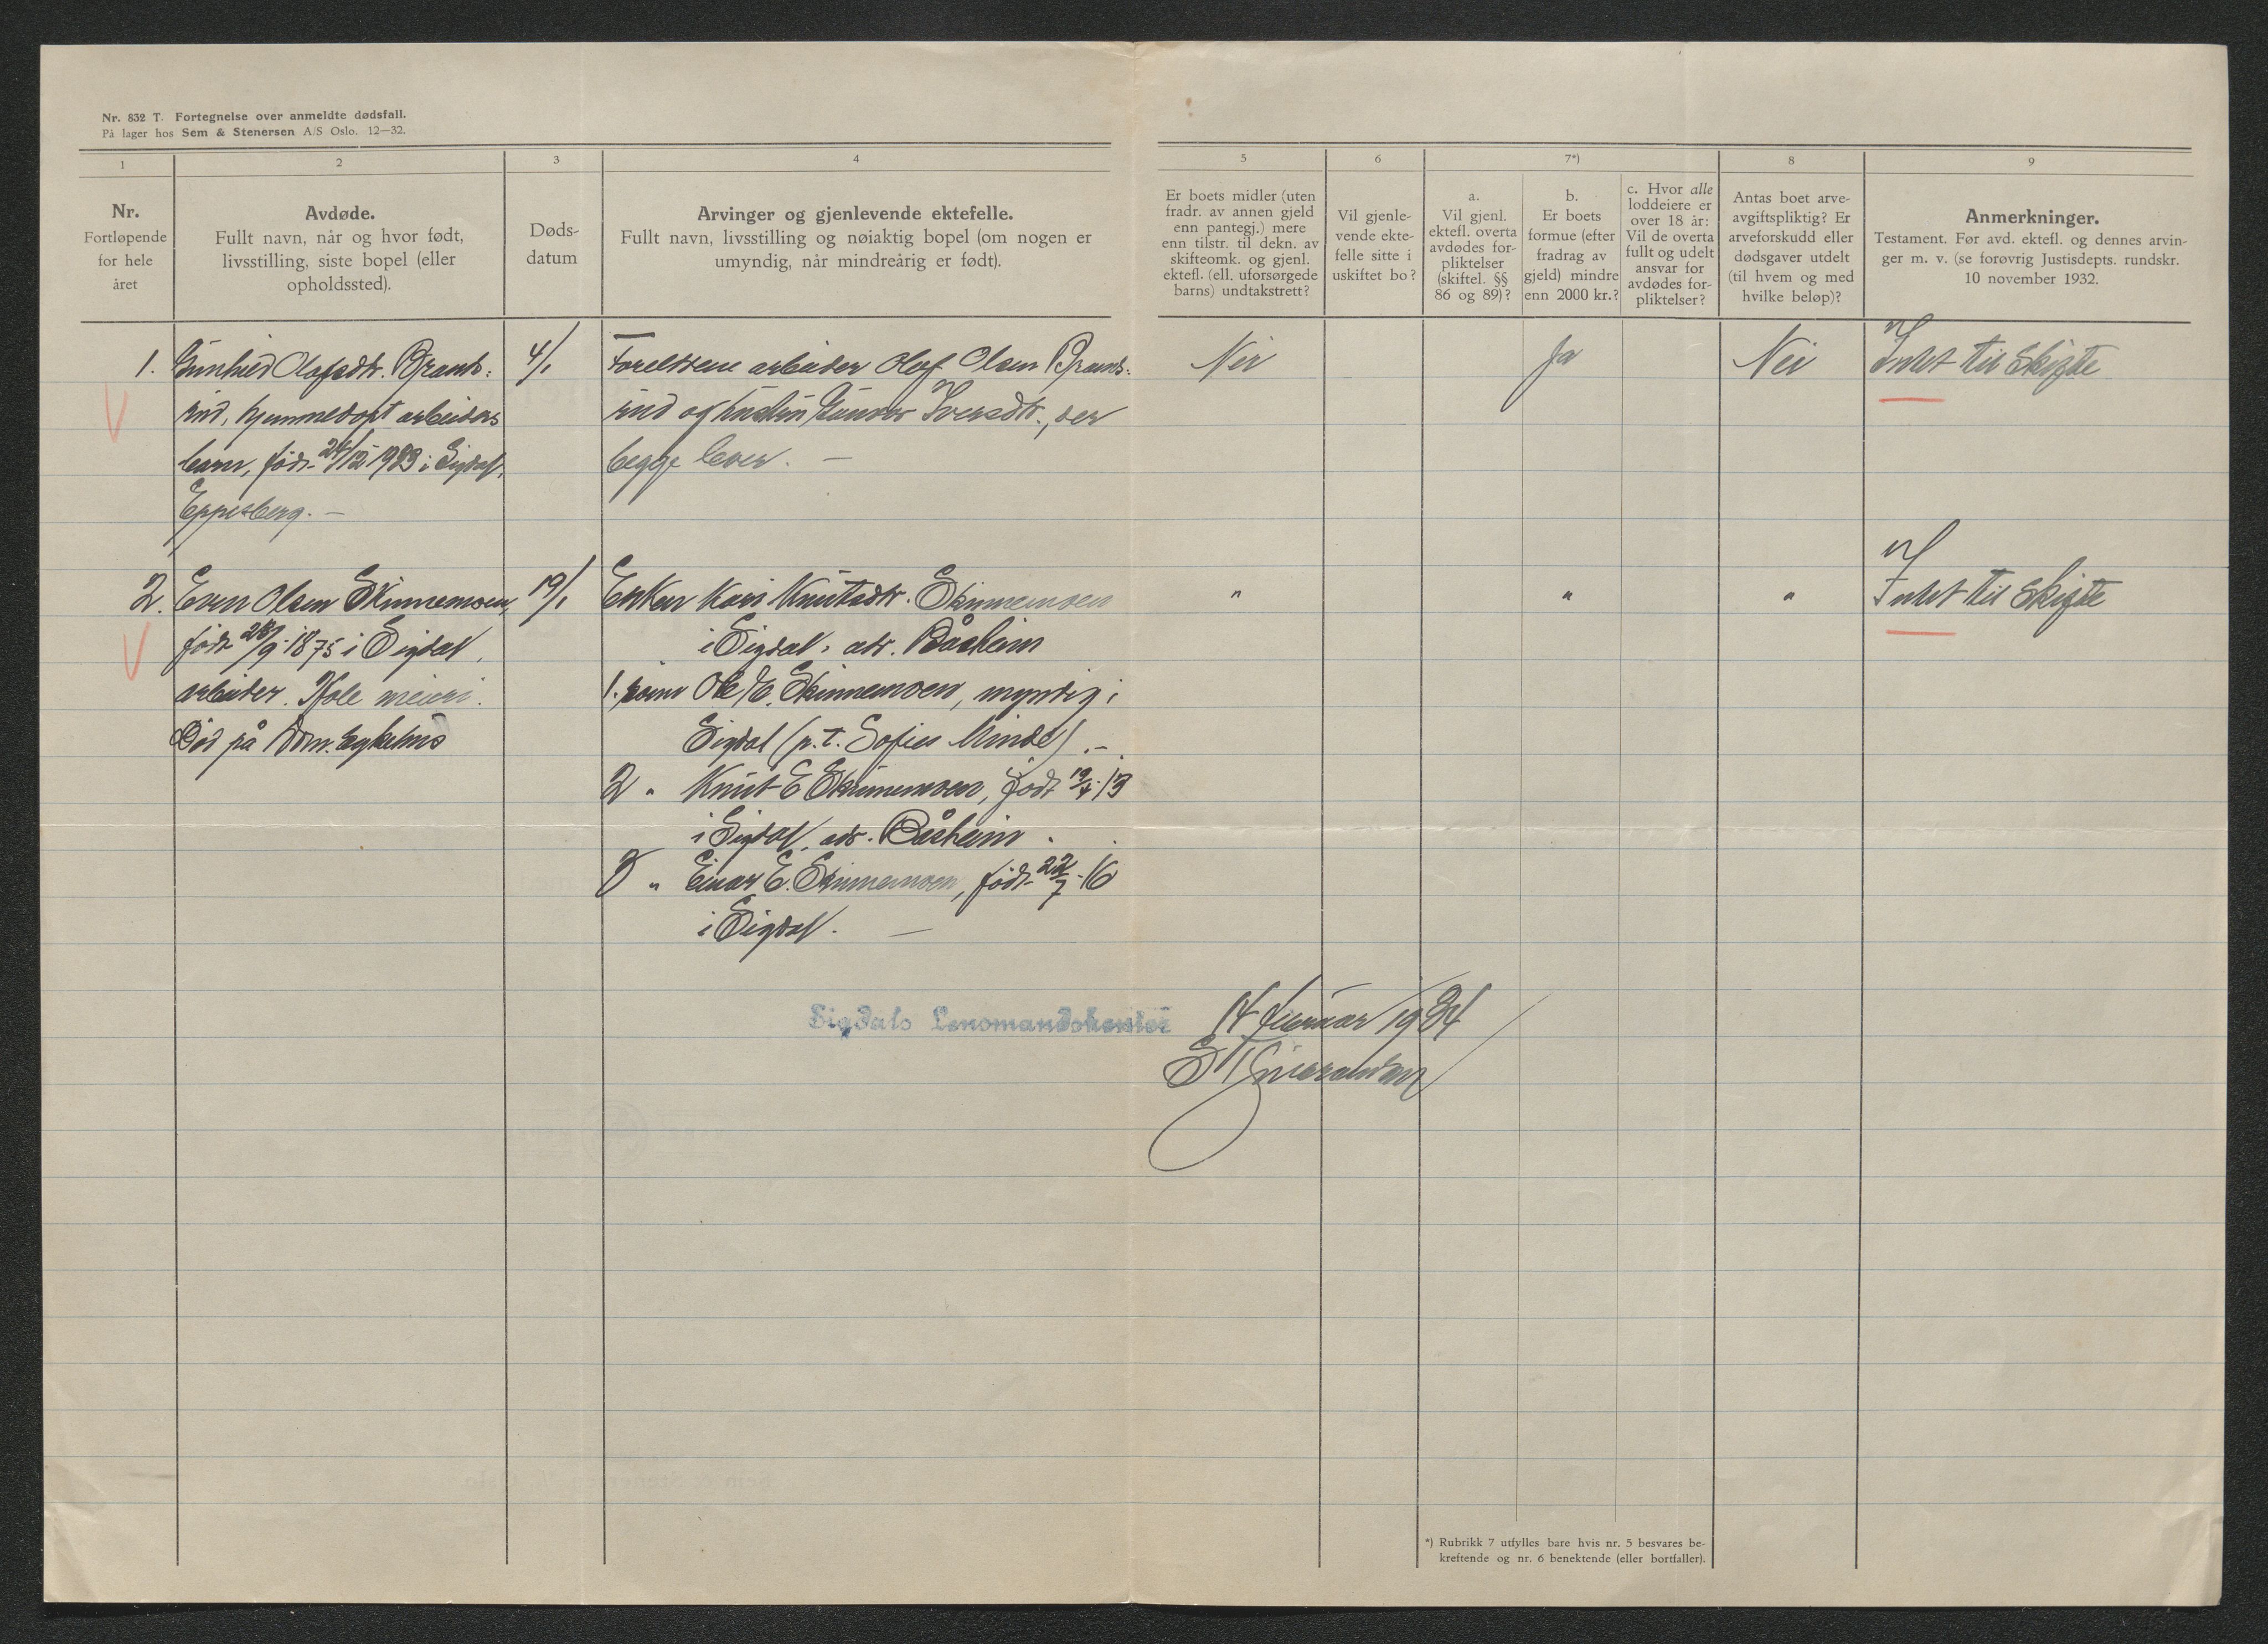 Nr. 832 T. Fortegnelse over anmeldte dødsfall.
På lager hos Sem & Stenersen A/S Oslo. 12—32.
1
2
3
4
5
6
7*)
8
9
Nr.
Fortløpende
for hele
året
Avdøde.
Fullt navn, når og hvor født,
livsstilling, siste bopel (eller
opholdssted).
Døds-
datum
Arvinger og gjenlevende ektefelle.
Fullt navn, livsstilling og nøiaktig bopel (om nogen er
umyndig, når mindreårig er født).
Er boets midler (uten
fradr. av annen gjeld
enn pantegj.) mere
enn tilstr. til dekn. av
skifteomk. og gjenl.
ektefl. (ell. uforsørgede
barns) undtakstrett?
Vil gjenle-
vende ekte-
felle sitte i
uskiftet bo?
a.
Vil gjenl.
ektefl. overta
avdødes for-
pliktelser
(skiftel. §§
86 og 89)?
b.
Er boets
formue (efter
fradrag av
gjeld) mindre
enn 2000 kr.?
c. Hvor alle
loddeiere er
over 18 år:
Vil de overta
fullt og udelt
ansvar for
avdødes for-
pliktelser?
Antas boet arve-
avgiftspliktig? Er
arveforskudd eller
dødsgaver utdelt
(til hvem og med
hvilke beløp)?
Anmerkninger.
Testament. Før avd. ektefl. og dennes arvin-
ger m. v. (se forøvrig Justisdepts. rundskr.
10 november 1932.
1. Gunhild Olafsdtr. Brands-
rud, hjemmedøpt arbeiders
barn, født 24/12 1933 i Sigdal,
Eppesberg. —
4/1
Foreldrene arbeider Olaf Olsen Brands-
rud og hustru Gunvor Iversdtr., der
begge lever. —
Nei
Ja
Nei
Intet til skifte
2. Even Olsen Skinnemoen,
født 28/9-1875 i Sigdal,
arbeider. Hole meieri.
Død på Dram. sykehus
19/1
Enken Kari Knutsdtr. Skinnemoen
i Sigdal, adr. Båsheim
1. sønn Ole E. Skinnemoen, myndig i
Sigdal (p.t. Sofies Minde). —
2 " Knut E Skinnemoen, født 19/4-13
i Sigdal, adr. Båsheim.
3 " Einar E. Skinnemoen, født 22/7-16
i Sigdal. —
"
"
"
Intet til skifte
Sigdals Lensmandskontor
14 februar 1934
*) Rubrikk 7 utfylles bare hvis nr. 5 besvares be-
kreftende og nr. 6 benektende (eller bortfaller).